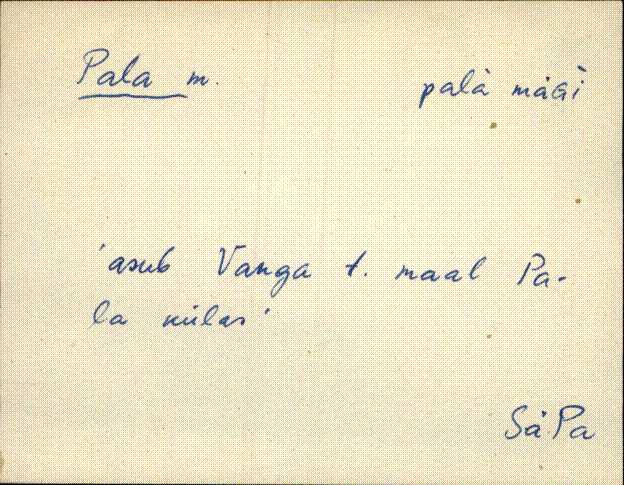 Pala m. palà mäGi
'asub Vanga t. maal Pa-
la külas'
SäPa